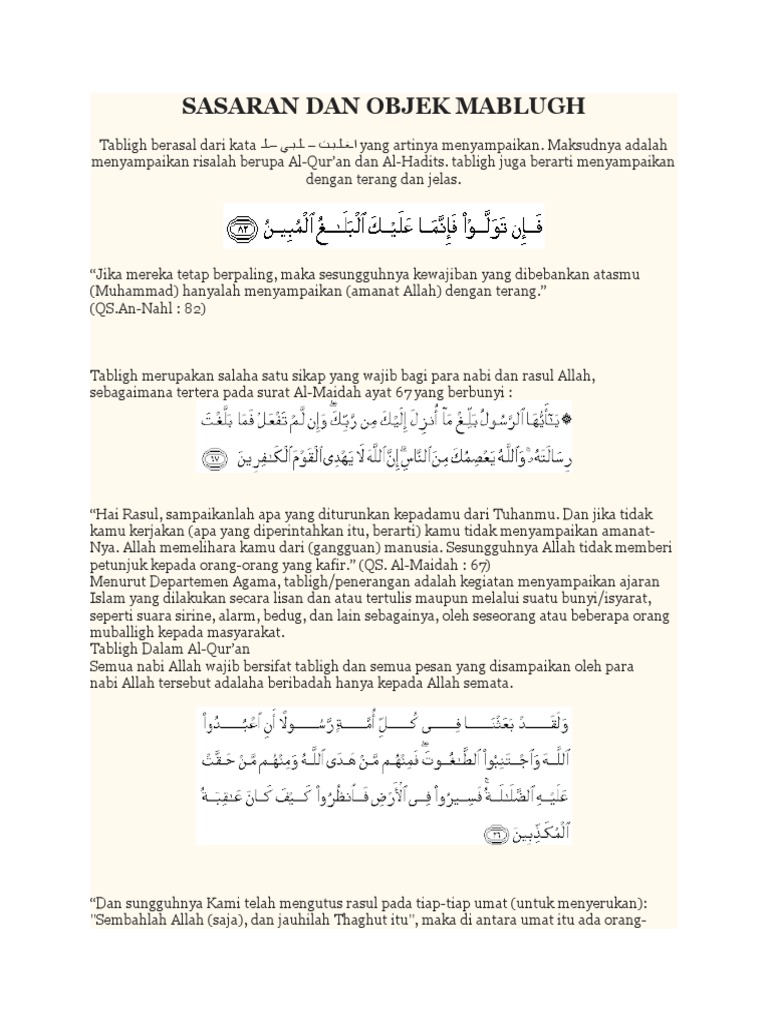 SASARAN DAN OBJEK MABLUGH
Tabligh berasal dari kata اغلبت – غلبي – غلب yang artinya menyampaikan. Maksudnya adalah
menyampaikan risalah berupa Al-Qur'an dan Al-Hadits. tabligh juga berarti menyampaikan
dengan terang dan jelas.
فَإِن تَوَلَّوْا۟ فَإِنَّمَا عَلَيْكَ ٱلْبَلَـٰغُ ٱلْمُبِينُ ﴿٨٢﴾
“Jika mereka tetap berpaling, maka sesungguhnya kewajiban yang dibebankan atasmu
(Muhammad) hanyalah menyampaikan (amanat Allah) dengan terang.”
(QS.An-Nahl : 82)
Tabligh merupakan salaha satu sikap yang wajib bagi para nabi dan rasul Allah,
sebagaimana tertera pada surat Al-Maidah ayat 67 yang berbunyi :
۞ يَـٰٓأَيُّهَا ٱلرَّسُولُ بَلِّغْ مَآ أُنزِلَ إِلَيْكَ مِن رَّبِّكَ ۖ وَإِن لَّمْ تَفْعَلْ فَمَا بَلَّغْتَ
رِسَالَتَهُۥ ۚ وَٱللَّهُ يَعْصِمُكَ مِنَ ٱلنَّاسِ ۗ إِنَّ ٱللَّهَ لَا يَهْدِى ٱلْقَوْمَ ٱلْكَـٰفِرِينَ ﴿٦٧﴾
“Hai Rasul, sampaikanlah apa yang diturunkan kepadamu dari Tuhanmu. Dan jika tidak
kamu kerjakan (apa yang diperintahkan itu, berarti) kamu tidak menyampaikan amanat-
Nya. Allah memelihara kamu dari (gangguan) manusia. Sesungguhnya Allah tidak memberi
petunjuk kepada orang-orang yang kafir.” (QS. Al-Maidah : 67)
Menurut Departemen Agama, tabligh/penerangan adalah kegiatan menyampaikan ajaran
Islam yang dilakukan secara lisan dan atau tertulis maupun melalui suatu bunyi/isyarat,
seperti suara sirine, alarm, bedug, dan lain sebagainya, oleh seseorang atau beberapa orang
muballigh kepada masyarakat.
Tabligh Dalam Al-Qur'an
Semua nabi Allah wajib bersifat tabligh dan semua pesan yang disampaikan oleh para
nabi Allah tersebut adalaha beribadah hanya kepada Allah semata.
وَلَقَدْ بَعَثْنَا فِى كُلِّ أُمَّةٍ رَّسُولًا أَنِ ٱعْبُدُوا۟
ٱللَّهَ وَٱجْتَنِبُوا۟ ٱلطَّـٰغُوتَ ۖ فَمِنْهُم مَّنْ هَدَى ٱللَّهُ وَمِنْهُم مَّنْ حَقَّتْ
عَلَيْهِ ٱلضَّلَـٰلَةُ ۚ فَسِيرُوا۟ فِى ٱلْأَرْضِ فَٱنظُرُوا۟ كَيْفَ كَانَ عَـٰقِبَةُ
ٱلْمُكَذِّبِينَ ﴿٣٦﴾
“Dan sungguhnya Kami telah mengutus rasul pada tiap-tiap umat (untuk menyerukan):
"Sembahlah Allah (saja), dan jauhilah Thaghut itu", maka di antara umat itu ada orang-